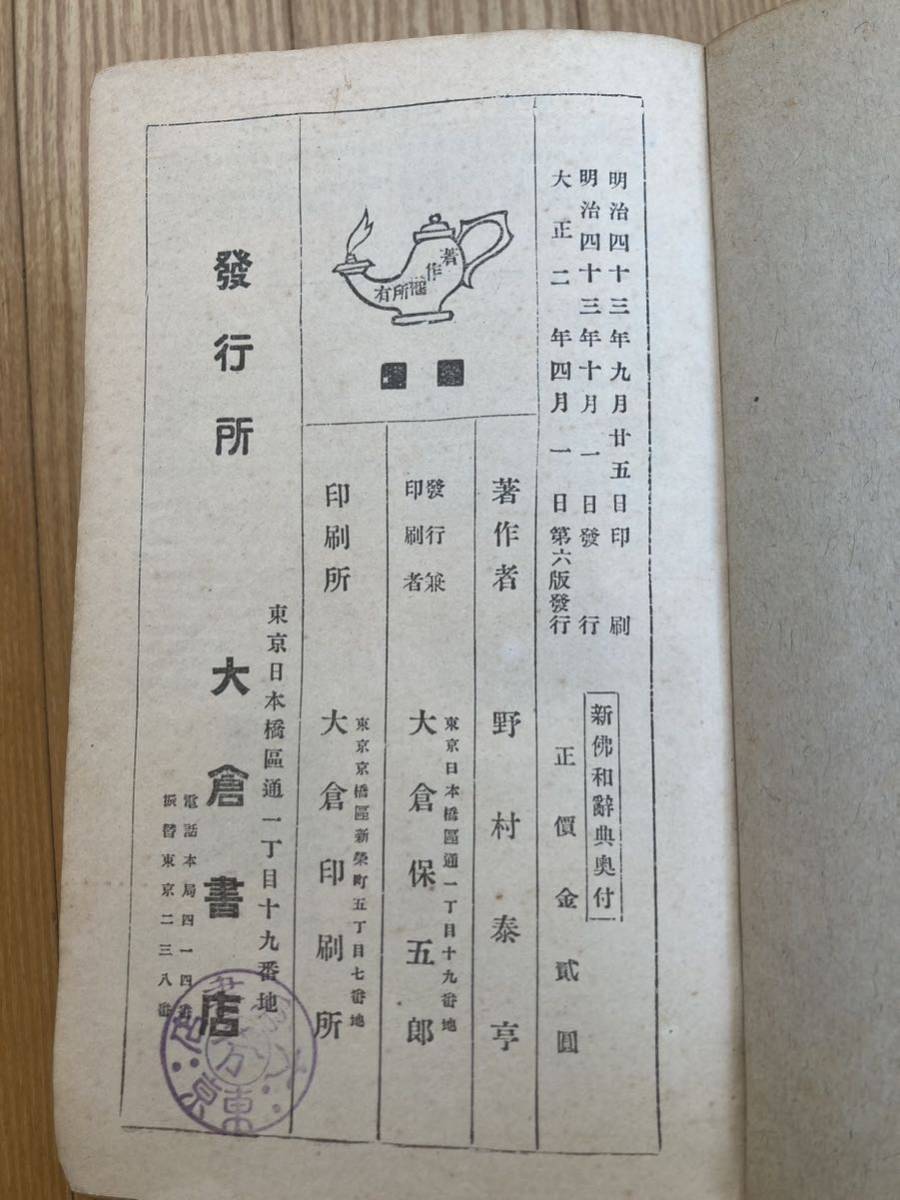 明治四十三年九月廿五日印刷
明治四十三年十月一日發行
大正二年四月一日第六版發行
新佛和辭典奥付
正價金貳圓
著作權所有
著作者
野村泰亨
發行兼
印刷者
東京日本橋區通一丁目十九番地
大倉保五郎
印刷所
東京京橋區新榮町五丁目七番地
大倉印刷所
發行所
東京日本橋區通一丁目十九番地
大倉書店
電話本局四一四番
振替東京二三八番
東京